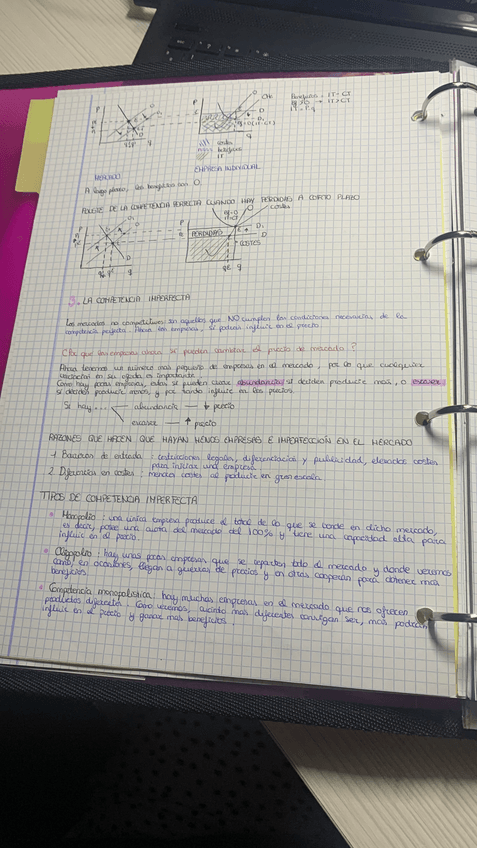 Beneficios = IT > CT
IT = P · q
MERCADO
EMPRESA INDIVIDUAL
costes
beneficios
IT
A largo plazo, los beneficios son 0.
AJUSTE DE LA COMPETENCIA PERFECTA CUANDO HAY PÉRDIDAS A CORTO PLAZO
PÉRDIDAS
COSTES
5. LA COMPETENCIA IMPERFECTA
Los mercados no competitivos son aquellos que NO cumplen las condiciones necesarias de la
competencia perfecta. Ahora las empresas, sí podrán influir en el precio
¿Por qué las empresas ahora sí pueden cambiar el precio de mercado?
Ahora tenemos un número más pequeño de empresas en el mercado, por lo que cualquier
variación en su oferta es importante.
Como hay pocas empresas, estas sí pueden crear abundancia si deciden producir más, o escasez
si deciden producir menos, y por tanto influir en los precios.
Si hay... abundancia → ↓ precio
escasez → ↑ precio
RAZONES QUE HACEN QUE HAYAN MENOS EMPRESAS E IMPERFECCIÓN EN EL MERCADO
1. Barreras de entrada: restricciones legales, diferenciación y publicidad, elevados costes
para iniciar una empresa
2. Diferencias en costes: menores costes al producir en gran escala.
TIPOS DE COMPETENCIA IMPERFECTA
• Monopolio: una única empresa produce el total de lo que se vende en dicho mercado,
es decir, posee una cuota del mercado del 100% y tiene una capacidad alta para
influir en el precio.
• Oligopolio: hay unas pocas empresas que se reparten todo el mercado y donde veremos
como, en ocasiones, llegan a guerras de precios y en otras cooperan para obtener más
beneficios.
• Competencia monopolística: hay muchas empresas en el mercado que nos ofrecen
productos diferentes. Como veremos, cuanto más diferentes consigan ser, más podrán
influir en el precio y ganar más beneficios.